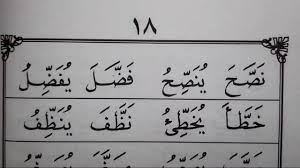 ١٨
نَصَّحَ يُنَصِّحُ فَضَّلَ يُفَضِّلُ
خَطَّأَ يُخَطِّئُ نَظَّفَ يُنَظِّفُ